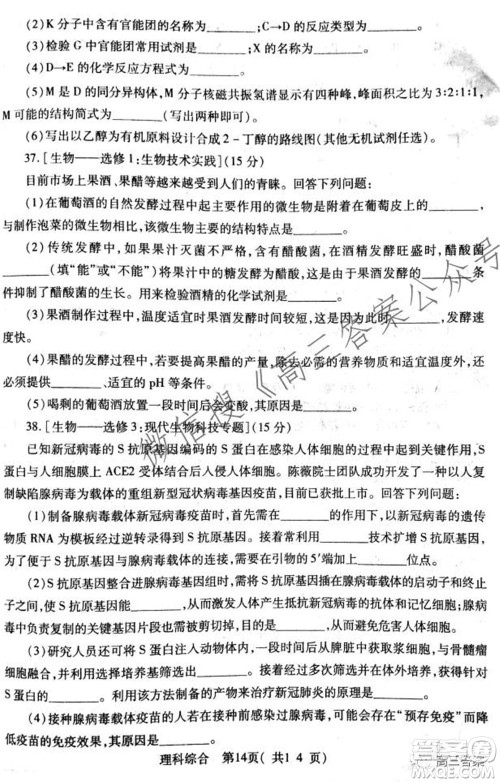 (2)K分子中含有官能团的名称为______;C→D的反应类型为______。
(3)检验G中官能团常用试剂是______;X的名称为______。
(4)D→E的化学反应方程式为______。
(5)M是D的同分异构体,M分子核磁共振氢谱显示有四种峰,峰面积之比为3:2:1:1,
M可能的结构简式为______(写出两种)。
(6)写出以乙醇为有机原料设计合成2-丁醇的路线图(其他无机试剂任选)。
37.[生物——选修1:生物技术实践](15分)
目前市场上果酒、果醋等越来越受到人们的青睐。回答下列问题:
(1)在葡萄酒的自然发酵过程中起主要作用的微生物是附着在葡萄皮上的______,
与制作泡菜的微生物相比,该微生物主要的结构特点是______。
(2)传统发酵中,如果果汁灭菌不严格,含有醋酸菌,在酒精发酵旺盛时,醋酸菌
______(填“能”或“不能”)将果汁中的糖发酵为醋酸,这是由于果酒发酵时的______条
件抑制了醋酸菌的生长。用来检验酒精的化学试剂是______。
(3)果酒制作过程中,温度适宜时发酵时间较短,这是因为______,发酵速
度快。
(4)果醋的发酵过程中,若要提高果醋的产量,除去必需的营养物质和适宜温度外,还
必须提供______、适宜的pH等条件。
(5)喝剩的葡萄酒放置一段时间后会变酸,其原因是______。
38.[生物——选修3:现代生物科技专题](15分)
已知新冠病毒的S抗原基因编码的S蛋白在感染人体细胞的过程中起到关键作用,S
蛋白与人细胞膜上ACE2受体结合后入侵人体细胞。陈薇院士团队成功开发了一种以复
制缺陷腺病毒为载体的重组新型冠状病毒基因疫苗,目前已上市。回答以下问题:
(1)制备腺病毒载体新冠病毒疫苗时,首先需要在______的作用下,以新冠病毒的遗传
物质RNA为模板经过逆转录得到DNA,再利用______技术扩增S抗原基因,同时,
为了便于S抗原基因与腺病毒载体的连接,需要在引物的5′端加上______位点。
(2)S抗原基因整合进腺病毒载体时,需要构建在腺病毒载体的启动子和终止子之
间,以便于使S抗原基因______,从而激发人体产生抗S抗原的抗体和记忆细胞;病毒
中负责复制的关键基因片段也需被剪切掉,目的是______,从而降低对人体的危害。
(3)研究人员还可将S蛋白注入动物体内,一段时间后从脾脏中获取浆细胞,与骨髓瘤
细胞融合,并利用选择培养基筛选出______。接着经过多次克隆和体外培养,获得针对
S蛋白的______。利用该方法制备的产物来治疗新冠肺炎的原理是______。
(4)接种腺病毒载体疫苗的人群中,有人因为在接种前感染过腺病毒,会存在“预存免疫”而
影响疫苗的免疫效果,其原因是______。
理科综合 第14页(共14页)
微信搜《高三答案公众号》
高三答案